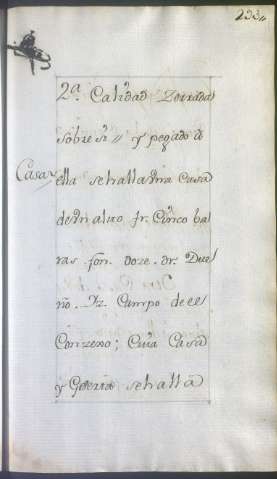 233
2ª. Calidad Zerrada
sobre si // y pegado a
Casa
ella se halla una Casa
de un alto fr. Cinco ba
ras fon. doze. dr. Due
ño. Yz. Campo de el
Conzexo; Cuia Casa
y Guerta se halla